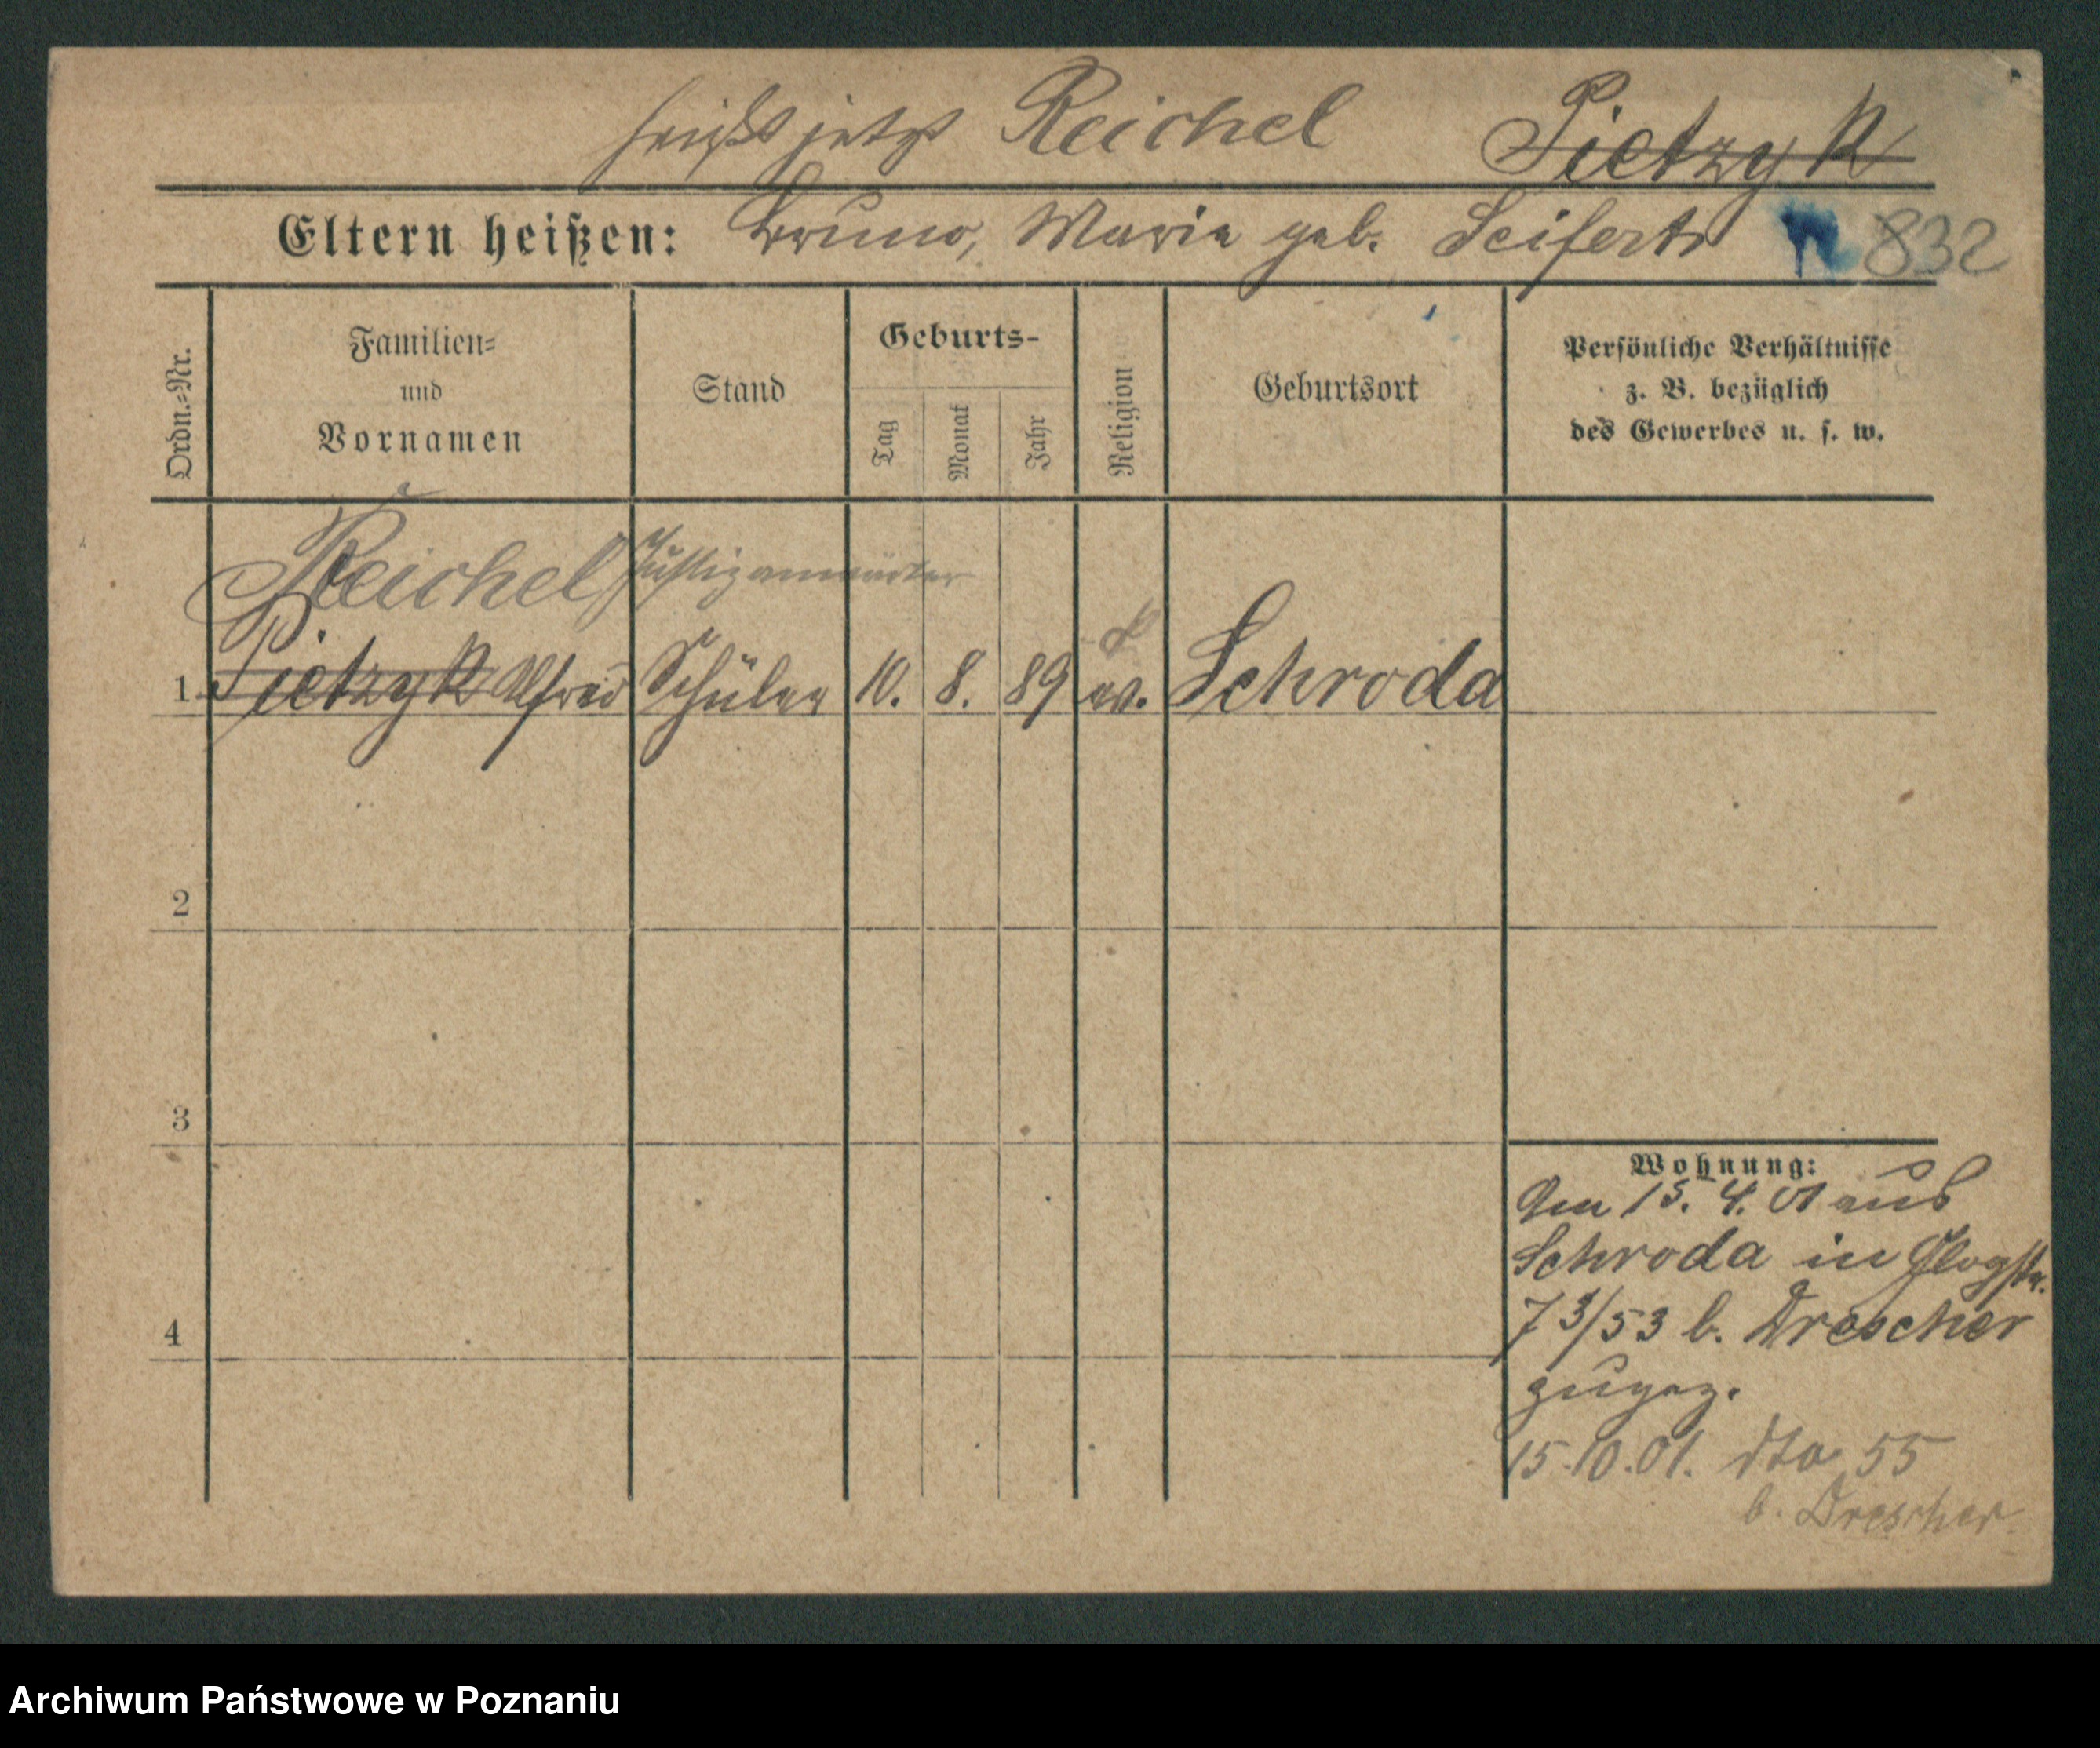 heißt jetzt Reichel Pietzyk
Eltern heißen: Bruno, Maria geb. Seifert 832
Ordn.-Nr.
Familien-
und
Vornamen
Stand
Geburts-
Tag
Monat
Jahr
Religion
Geburtsort
Persönliche Verhältnisse
z. B. bezüglich
des Gewerbes u. s. w.
Reichel Justizanwärter
1 Pietzyk Alfred Schüler 10. 8. 89 ev. Schroda
2
3
4
Wohnung:
Am 15. 4. 01 aus
Schroda in Glogstr.
73/53 b. Drescher
zugez.
15.10.01. dto 55
b. Drescher
Archiwum Państwowe w Poznaniu